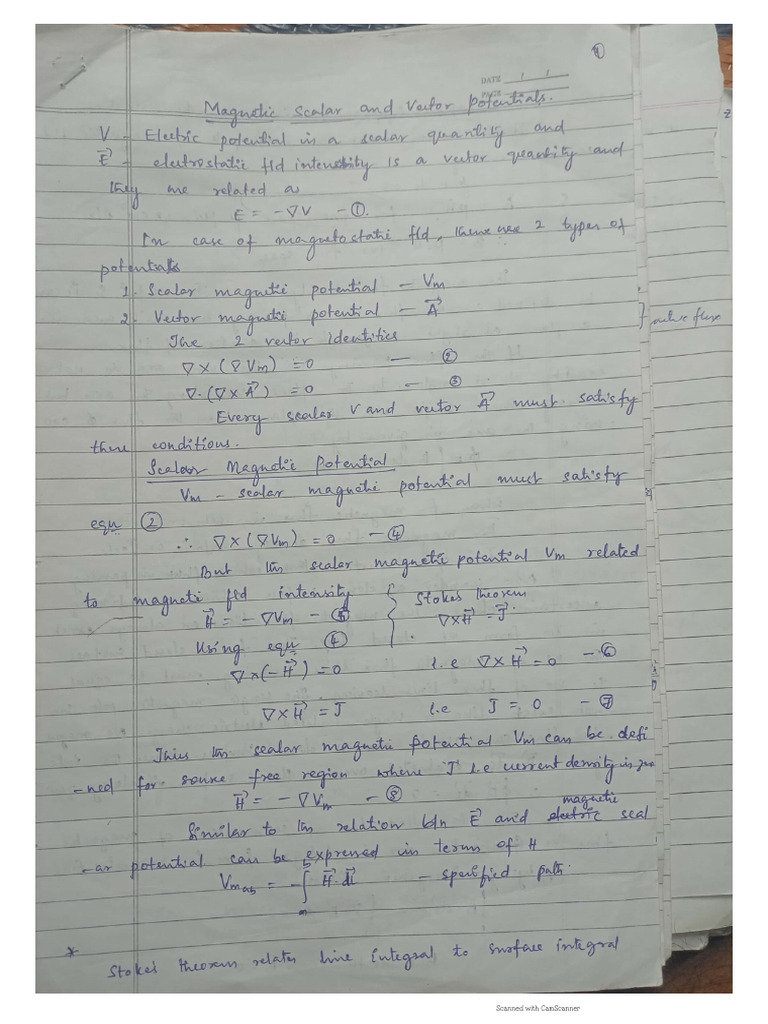 DATE / /
PAGE
Magnetic Scalar and Vector Potentials.
V - Electric potential in a scalar quantity and
E⃗ - electrostatic fld intensity is a vector quantity and
they are related as
E = -∇V - ①.
In case of magnetostatic fld, there are 2 types of
potentials
1. Scalar magnetic potential - Vm
2. Vector magnetic potential - A⃗
The 2 vector identities
∇×(∇Vm) = 0 - ②
∇.(∇×A⃗) = 0 - ③
Every scalar V and vector A⃗ must satisfy
these conditions.
Scalar Magnetic Potential
Vm - scalar magnetic potential must satisfy
equ ②
∴ ∇×(∇Vm) = 0 - ④
But the scalar magnetic potential Vm related
to magnetic fld intensity { Stokes theorem
H⃗ = -∇Vm - ⑤ ∇×H⃗ = J⃗.
Using equ ④
∇×(-H⃗) = 0 i.e ∇×H⃗ = 0 - ⑥
∇×H⃗ = J i.e J = 0 - ⑦
Thus the scalar magnetic potential Vm can be defi
-ned for source free region where J i.e current density is
H⃗ = -∇Vm - ⑧
magnetic
Similar to the relation b/n E⃗ and electric scal
-ar potential can be expressed in terms of H
Vm ab = -∫ H⃗ dl⃗ - specified path.
* Stokes theorem relates line integral to surface integral
Scanned with CamScanner